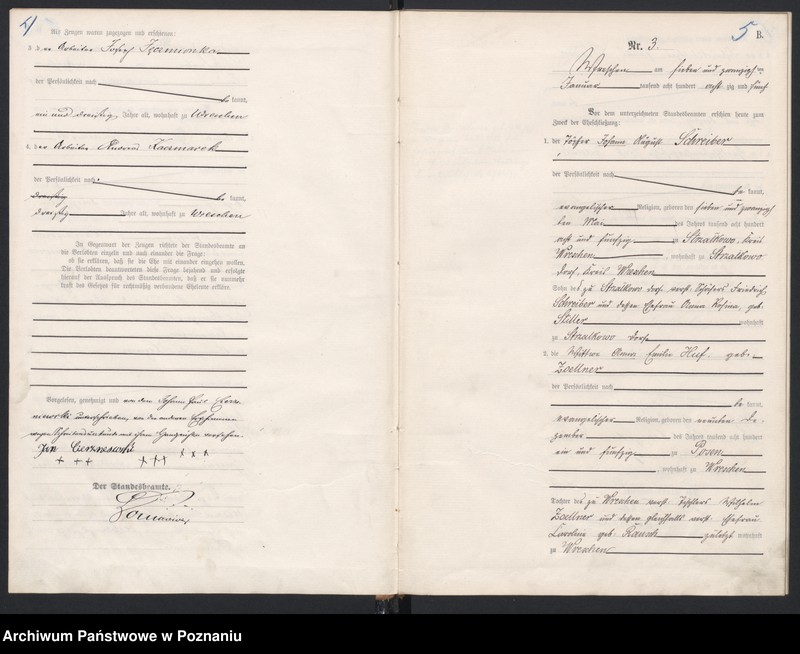 4
Als Zeugen waren zugezogen und erschienen:
3. der Arbeiter Josef
der Persönlichkeit nach
be kannt,
ein und dreißig Jahre alt, wohnhaft zu Wreschen
4. der Arbeiter Andreas Kaczmarek
der Persönlichkeit nach
dreißig be kannt,
dreißig Jahre alt, wohnhaft zu Wreschen
In Gegenwart der Zeugen richtete der Standesbeamte an
die Verlobten einzeln und nach einander die Frage:
ob sie erklären, daß sie die Ehe mit einander eingehen wollen.
Die Verlobten beantworteten diese Frage bejahend und erfolgte
hierauf der Ausspruch des Standesbeamten, daß er sie nunmehr
kraft des Gesetzes für rechtmäßig verbundene Eheleute erkläre.
Vorgelesen, genehmigt und von dem Johann
unterschrieben, von den anderen
wegen Schreibensunkunde mit ihren Handzeichen versehen.
Jan
+ ++ +++ x x x
Der Standesbeamte.
5 B.
Nr. 3.
Wreschen am sieben und zwanzigsten
Januar tausend acht hundert acht zig und fünf
Vor dem unterzeichneten Standesbeamten erschien heute zum
Zweck der Eheschließung:
1. der Johann August Schreiber
der Persönlichkeit nach
be kannt,
evangelischer Religion, geboren den sieben und zwanzig
sten Mai des Jahres tausend acht hundert
acht und fünfzig zu Strzalkowo, Kreis
Wreschen, wohnhaft zu Strzalkowo
Dorf, Kreis Wreschen
Sohn des zu Strzalkowo dorf verst. Friedrich
Schreiber und dessen Ehefrau Anna Rosina, geb.
Stiller wohnhaft
zu Strzalkowo dorf
2. die Wittwe Anna Emilie Huf, geb.
Zoellner
der Persönlichkeit nach
be kannt,
evangelischer Religion, geboren den neunten De
zember des Jahres tausend acht hundert
ein und fünfzig zu Posen
, wohnhaft zu Wreschen
Tochter des zu Wreschen verst. Tischlers Wilhelm
Zoellner und dessen gleichfalls verst. Ehefrau
Caroline geb. Rausch zuletzt wohnhaft
zu Wreschen
Archiwum Państwowe w Poznaniu